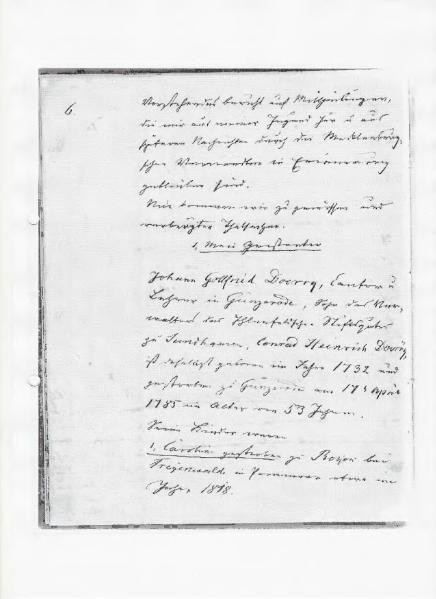 6.
Vorstehendes beruht auf Mittheilungen,
die mir aus meiner Jugend her u aus
späteren Nachrichten durch die Mecklenburg-
schen Verwandten in Erinnerung
geblieben sind.
Nun kommen wir zu gewissen und
verbürgten Thatsachen.
1, Mein Großvater
Johann Gottfried Doering, Cantor u
Lehrer in Günzerode, Sohn des Ver-
walters des Ihlenfeldischen Stiftsgutes
zu Sundhausen, Conrad Heinrich Doering,
ist daselbst geboren im Jahre 1732 und
gestorben zu am 17t April
1785 im Alter von 53 Jahren.
Seine Kinder waren
1, Caroline gestorben zu bei
Freyenwalde in Pommern etwa im
Jahre 1818.